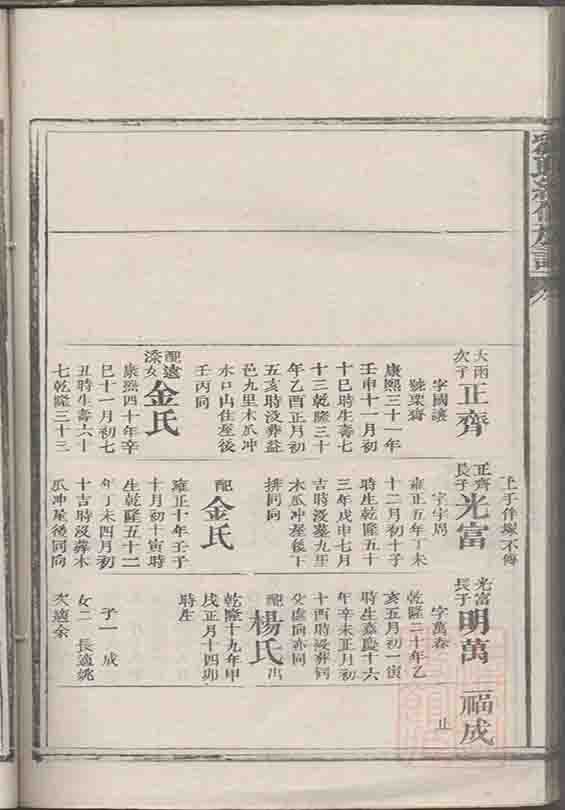 大雨次子
正齊
字國讓
號栗齋
康熙三十一年
壬申十一月初
十巳時生壽七
十三乾隆三十
年乙酉正月初
五亥時沒葬益
邑九里木瓜冲
水口山住屋後
壬丙向
配遠
漆女
金氏
康熙四十年辛
巳十一月初七
丑時生壽六十
七乾隆三十三
上子伴塚不傳
正齊長子
光富
字宇周
雍正五年丁未
十二月初十子
時生乾隆五十
三年戊申七月
吉時沒墓九里
木瓜冲屋後下
排同向
配
金氏
雍正十年壬子
十月初十寅時
生乾隆五十二
年丁未四月初
十吉時沒葬木
瓜冲屋後同向
光富長子
明萬
字萬春
乾隆二十年乙
亥五月初一寅
時生嘉慶十六
年辛未正月初
十酉時沒葬何
處向亦同
配
楊氏
乾隆十九年甲
戌正月十四卯
時生
子一 成
女二 長適姚
次適余
福成
止